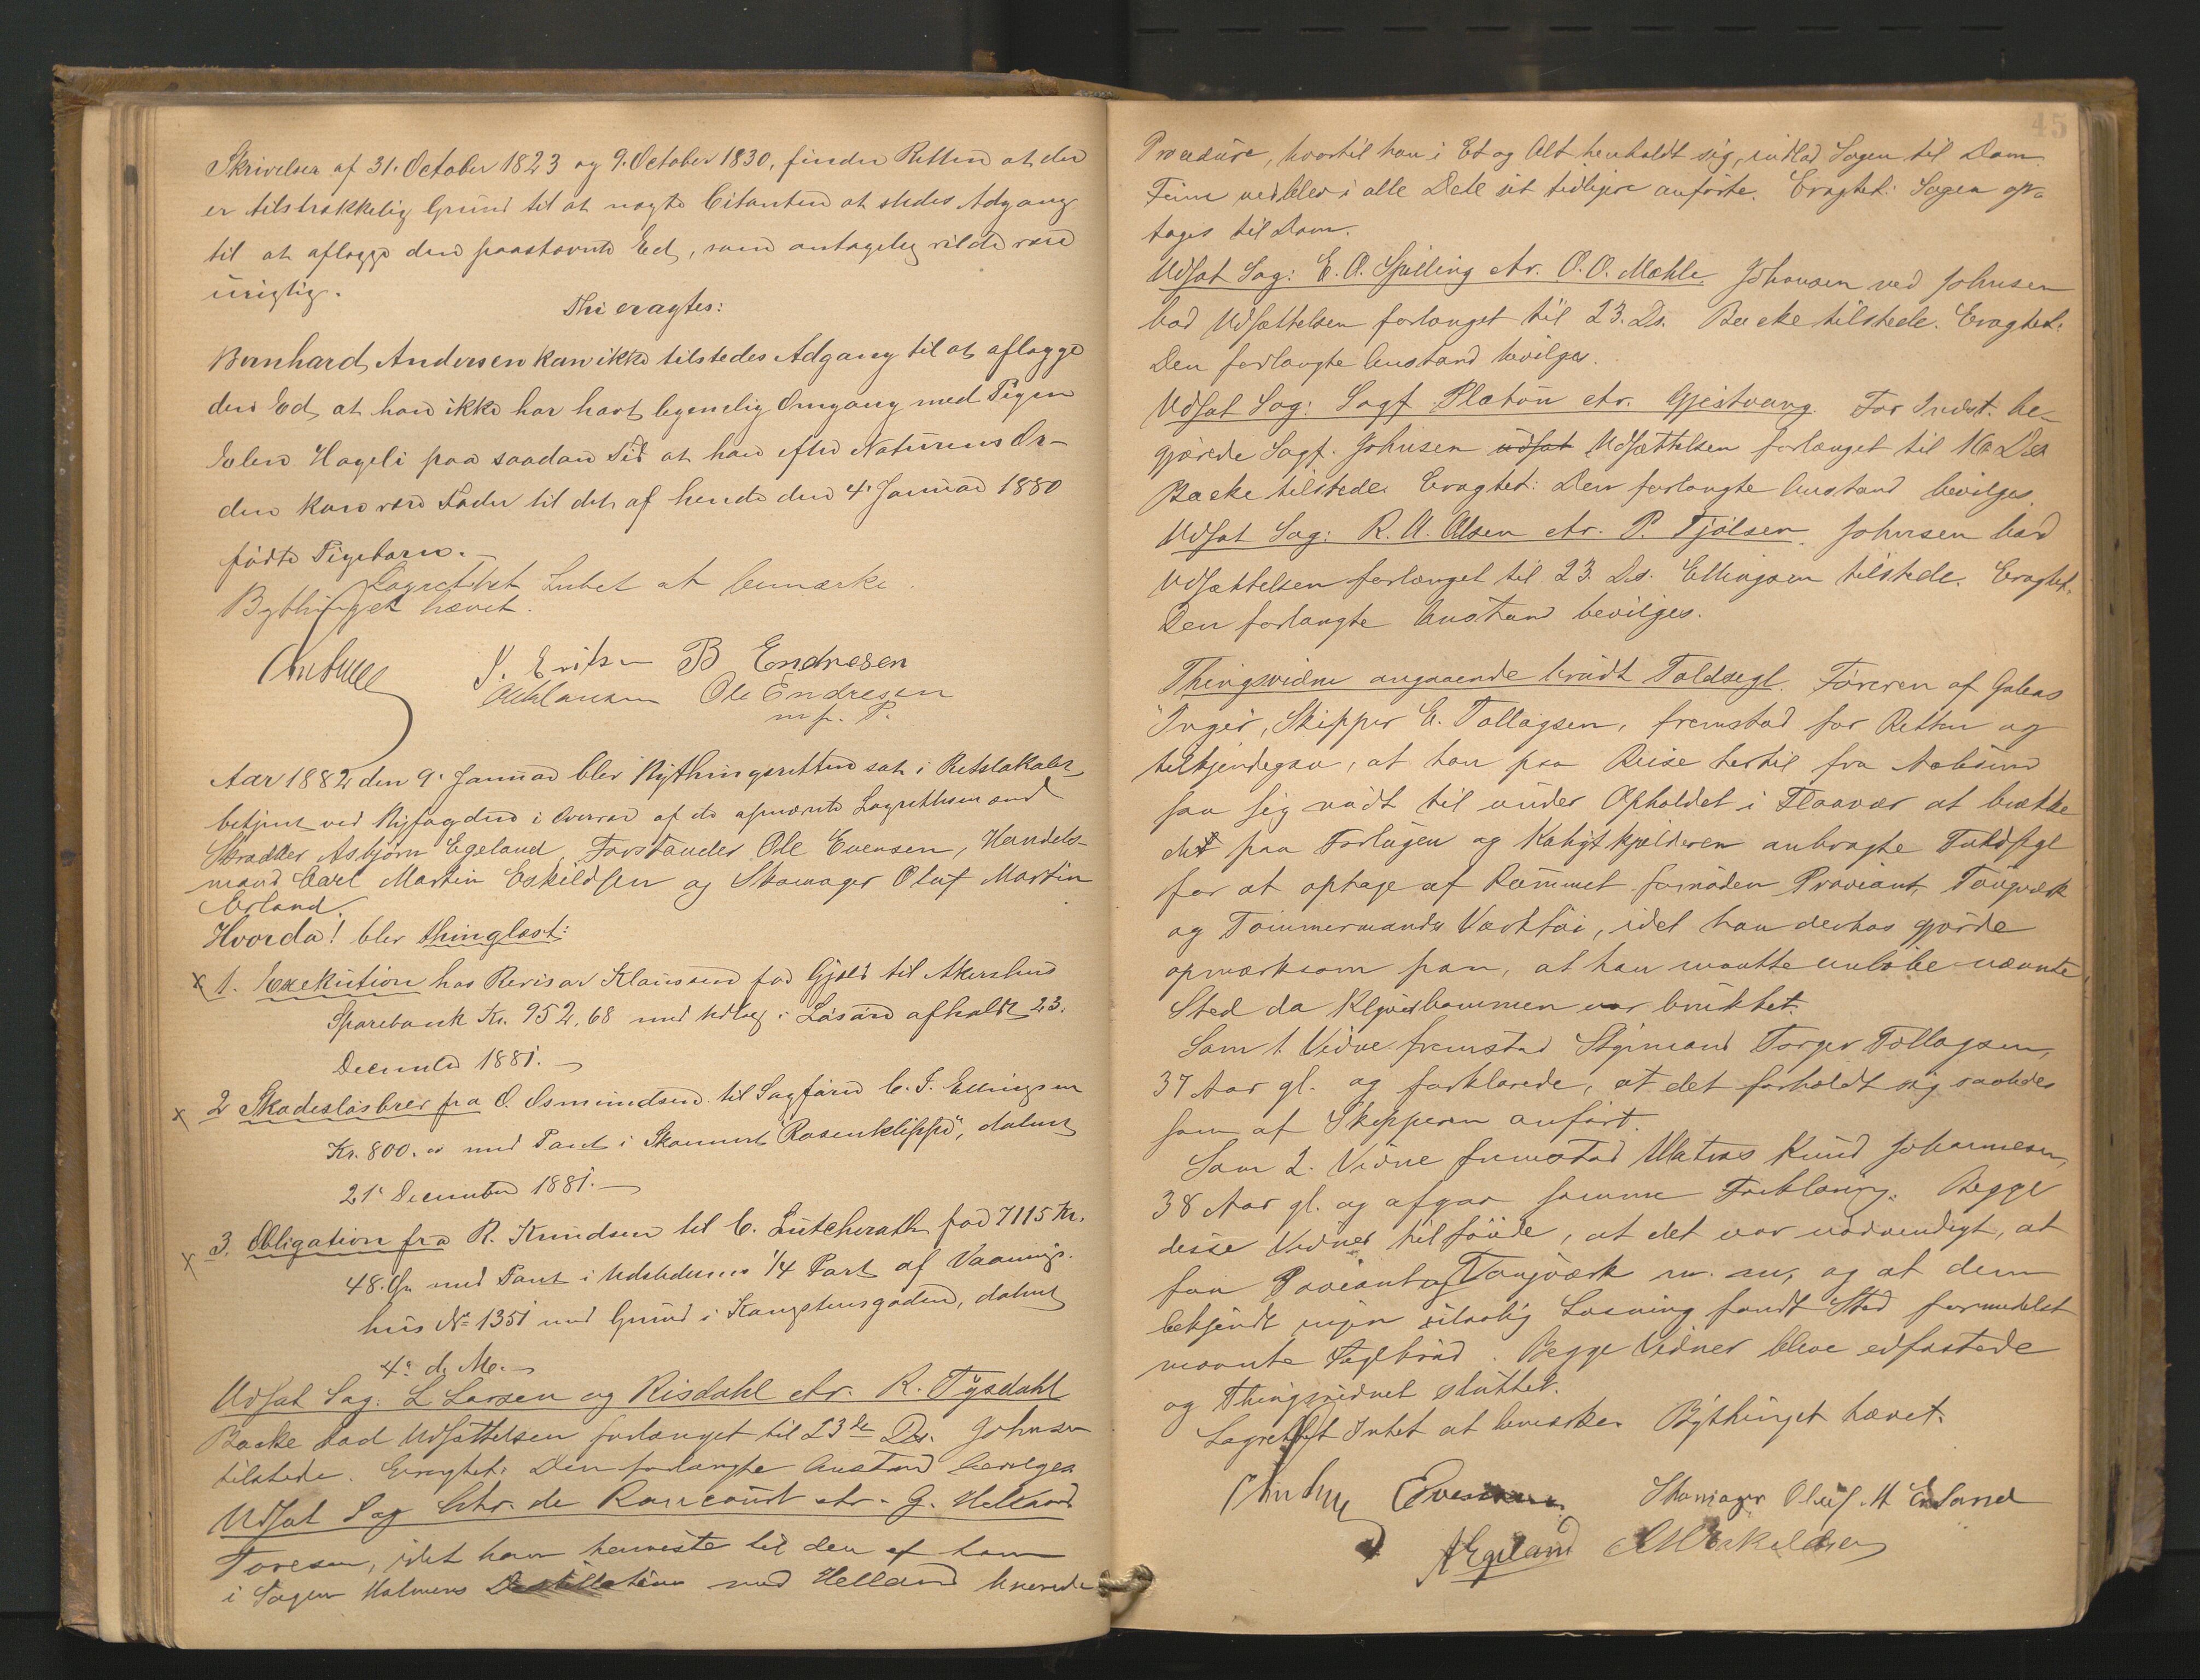 Skrivelser af 31. October 1823 og 9. October 1830, finder Retten at der
er tilstrækkelig Grund til at nægte Citanten at stedes Adgang
til at aflægge den paastævnte Ed, som antagelig vilde være
urigtig.
Thi eragtes:
Bernhard Andersen kan ikke tilstedes Adgang til at aflægge
den Ed, at han ikke har havt legemelig Omgang med Pigen
Elen Hageli paa saadan Tid at han efter Naturens Or-
den kan være Fader til det af hende den 4. Januar 1880
fødte Pigebarn.
Lagrettet Intet at bemærke.
Bythinget hævet.
B Endresen
Ole Endresen
m. f. P.
Aar 1882 den 9. Januar blev Bythingsretten sat i Retslokalet
betjent ved Byfogden i Overvær af de opnævnte Lagrettesmænd
Skrædder Asbjørn Egeland, Forstander Ole Evensen, Handels-
mand Carl Martin Eskildsen og Skomager Oluf Martin
Erland.
Hvorda! blev thinglæst:
x 1. Exekution hos Revisor Klaussen for Gjæld til Akershus
Sparebank Kr. 952,68 med Udlæg i Løsøre afholdt 23.
December 1881.
x 2 Skadesløsbrev fra O. Osmundsen til Sagfører C. F. Ellingsen
Kr. 800.00 med Pant i Skonnert "Rosenklippe", dateret
21. December 1881.
x 3. Obligation fra R. Knudsen til C. Lütcherath for 7115 Kr.
48 Ør. med Pant i Udstederens 1/4 Part af Vaanings-
hus No 1351 med Grund i Kongstensgaden, dateret
4. d. M.
Udsat Sag: L Larsen og Risdahl ctr. R. Tysdahl
Backe bad Udsættelsen forlænget til 23de Ds. Johnsen
tilstede. Eragtet: Den forlangte Anstand bevilges
Udsat Sag Schr. de Rancourt ctr. G. Helland
Toresen, idet han henviste til den af ham
i Sagen Holmens Destillation mod Helland leverede
45
Procedure, hvortil han i Et og Alt henholdt sig, indlod Sagen til Dom.
Feim vedblev i alle Dele sit tidligere anførte. Eragtet: Sagen op-
tages til Dom.
Udsat Sag: E. A. Spilling ctr. O. O. Mæhle. Johansen ved Johnsen
bad Udsættelsen forlænget til 23. Ds. Backe tilstede. Eragtet:
Den forlangte Anstand bevilges.
Udsat Sag: Sagf. Platou ctr. Gjestvang. For Indst. be-
gjærede Sagf. Johnsen udsat Udsættelsen forlænget til 16 Ds
Backe tilstede. Eragtet: Den forlangte Anstand bevilges.
Udsat Sag: R. A. Olsen ctr. P. Tjølsen. Johnsen bad
Udsættelsen forlænget til 23. Ds. Ellingsen tilstede. Eragtet:
Den forlangte Anstand bevilges.
Thingsvidne angaaende brudt Toldsegl. Føreren af Galeas
"Inger", Skipper E. Tollagsen, fremstod for Retten og
tilkjendegav, at han paa Reise hertil fra Aalesund
saa sig nødt til under Opholdet i Flaavær at brække
det paa Forlugen og Kahytkjælderen anbragte Toldsegl
for at optage af Rummet fornøden Proviant, Tougværk
og Tømmermands Værktøi, idet han derhos gjorde
opmærksom paa, at han maatte anløbe nævnte
Sted da Klyverbommen var brukket.
Som 1. Vidne fremstod Styrmand Torger Tollagsen,
37 Aar gl. og forklarede, at det forholdt sig saaledes
som af Skipperen anført.
Som 2. Vidne fremstod Matros Knud Johannesen,
38 Aar gl. og afgav samme Forklaring. Begge
disse Vidner tilføiede, at det var nødvendigt, at
faa Proviant og Tougværk m. m, og at dem
bekjendt ingen ulovlig Losning fandt Sted formedelst
nævnte Seglbrud. Begge Vidner bleve edfæstede
og Thingsvidnet sluttet.
Lagrettet Intet at bemærke. Bythinget hævet.
Evensen
Skomager Oluf. M Erland
AEgeland
CMEskildsen